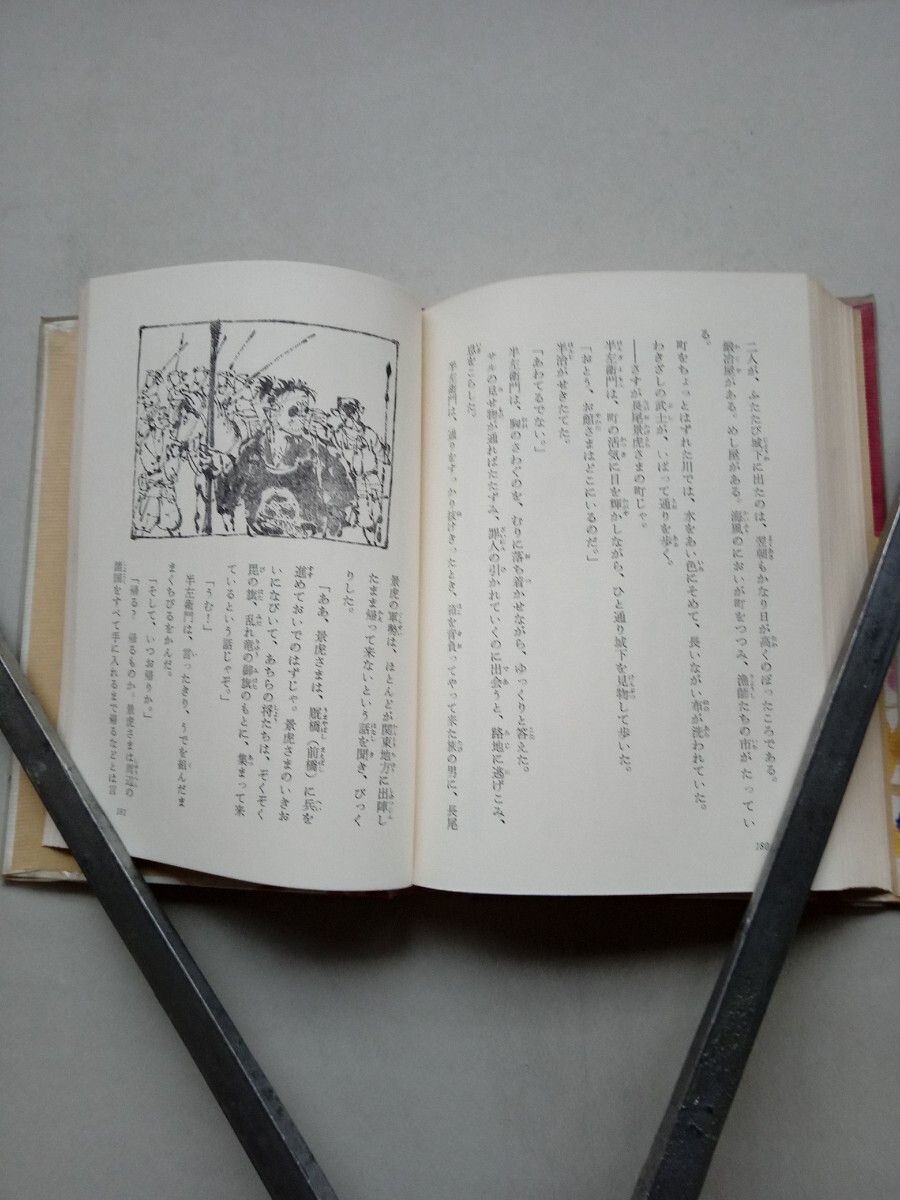 二人が、ふたたび城下に出たのは、翌朝もかなり日が高くのぼったころである。
鍛冶屋がある。めし屋がある。海風のにおいが町をつつみ、漁師たちの市がたってい
る。
町をちょっとはずれた川では、水をあい色にそめて、長いながい布が洗われていた。
わきざしの武士が、いばって通りを歩く。
――さすが長尾景虎さまの町じゃ。
半左衛門は、町の活気に目を輝かしながら、ひと通り城下を見物して歩いた。
「おとう、お館さまはどこにいるのだ。」
半治がせきたてた。
「あわてるでない。」
半左衛門は、胸のさわぐのを、むりに落ち着かせながら、ゆっくりと答えた。
サルの見せ物が通ればたたずみ、罪人の引かれていくのに出会うと、路地に逃げこみ、
息をこらした。
半左衛門は、通りをすっかり抜けきったとき、笛を背負ってやって来た旅の男に、長尾
180
景虎の軍勢は、ほとんどが関東地方に出陣し
たまま帰って来ないという話を聞き、びっく
りした。
「ああ、景虎さまは、厩橋（前橋）に兵を
進めておいでのはずじゃ。景虎さまのいきお
いになびいて、あちらの将たちは、ぞくぞく
毘の旗、乱れ竜の御旗のもとに、集まって来
ているという話じゃぞ。」
「うむ！」
半左衛門は、言ったきり、うでを組んだま
まくちびるをかんだ。
「そして、いつお帰りか。」
「帰る？　帰るものか。景虎さまは周辺の
諸国をすべて手に入れるまで帰るなどとは言
181